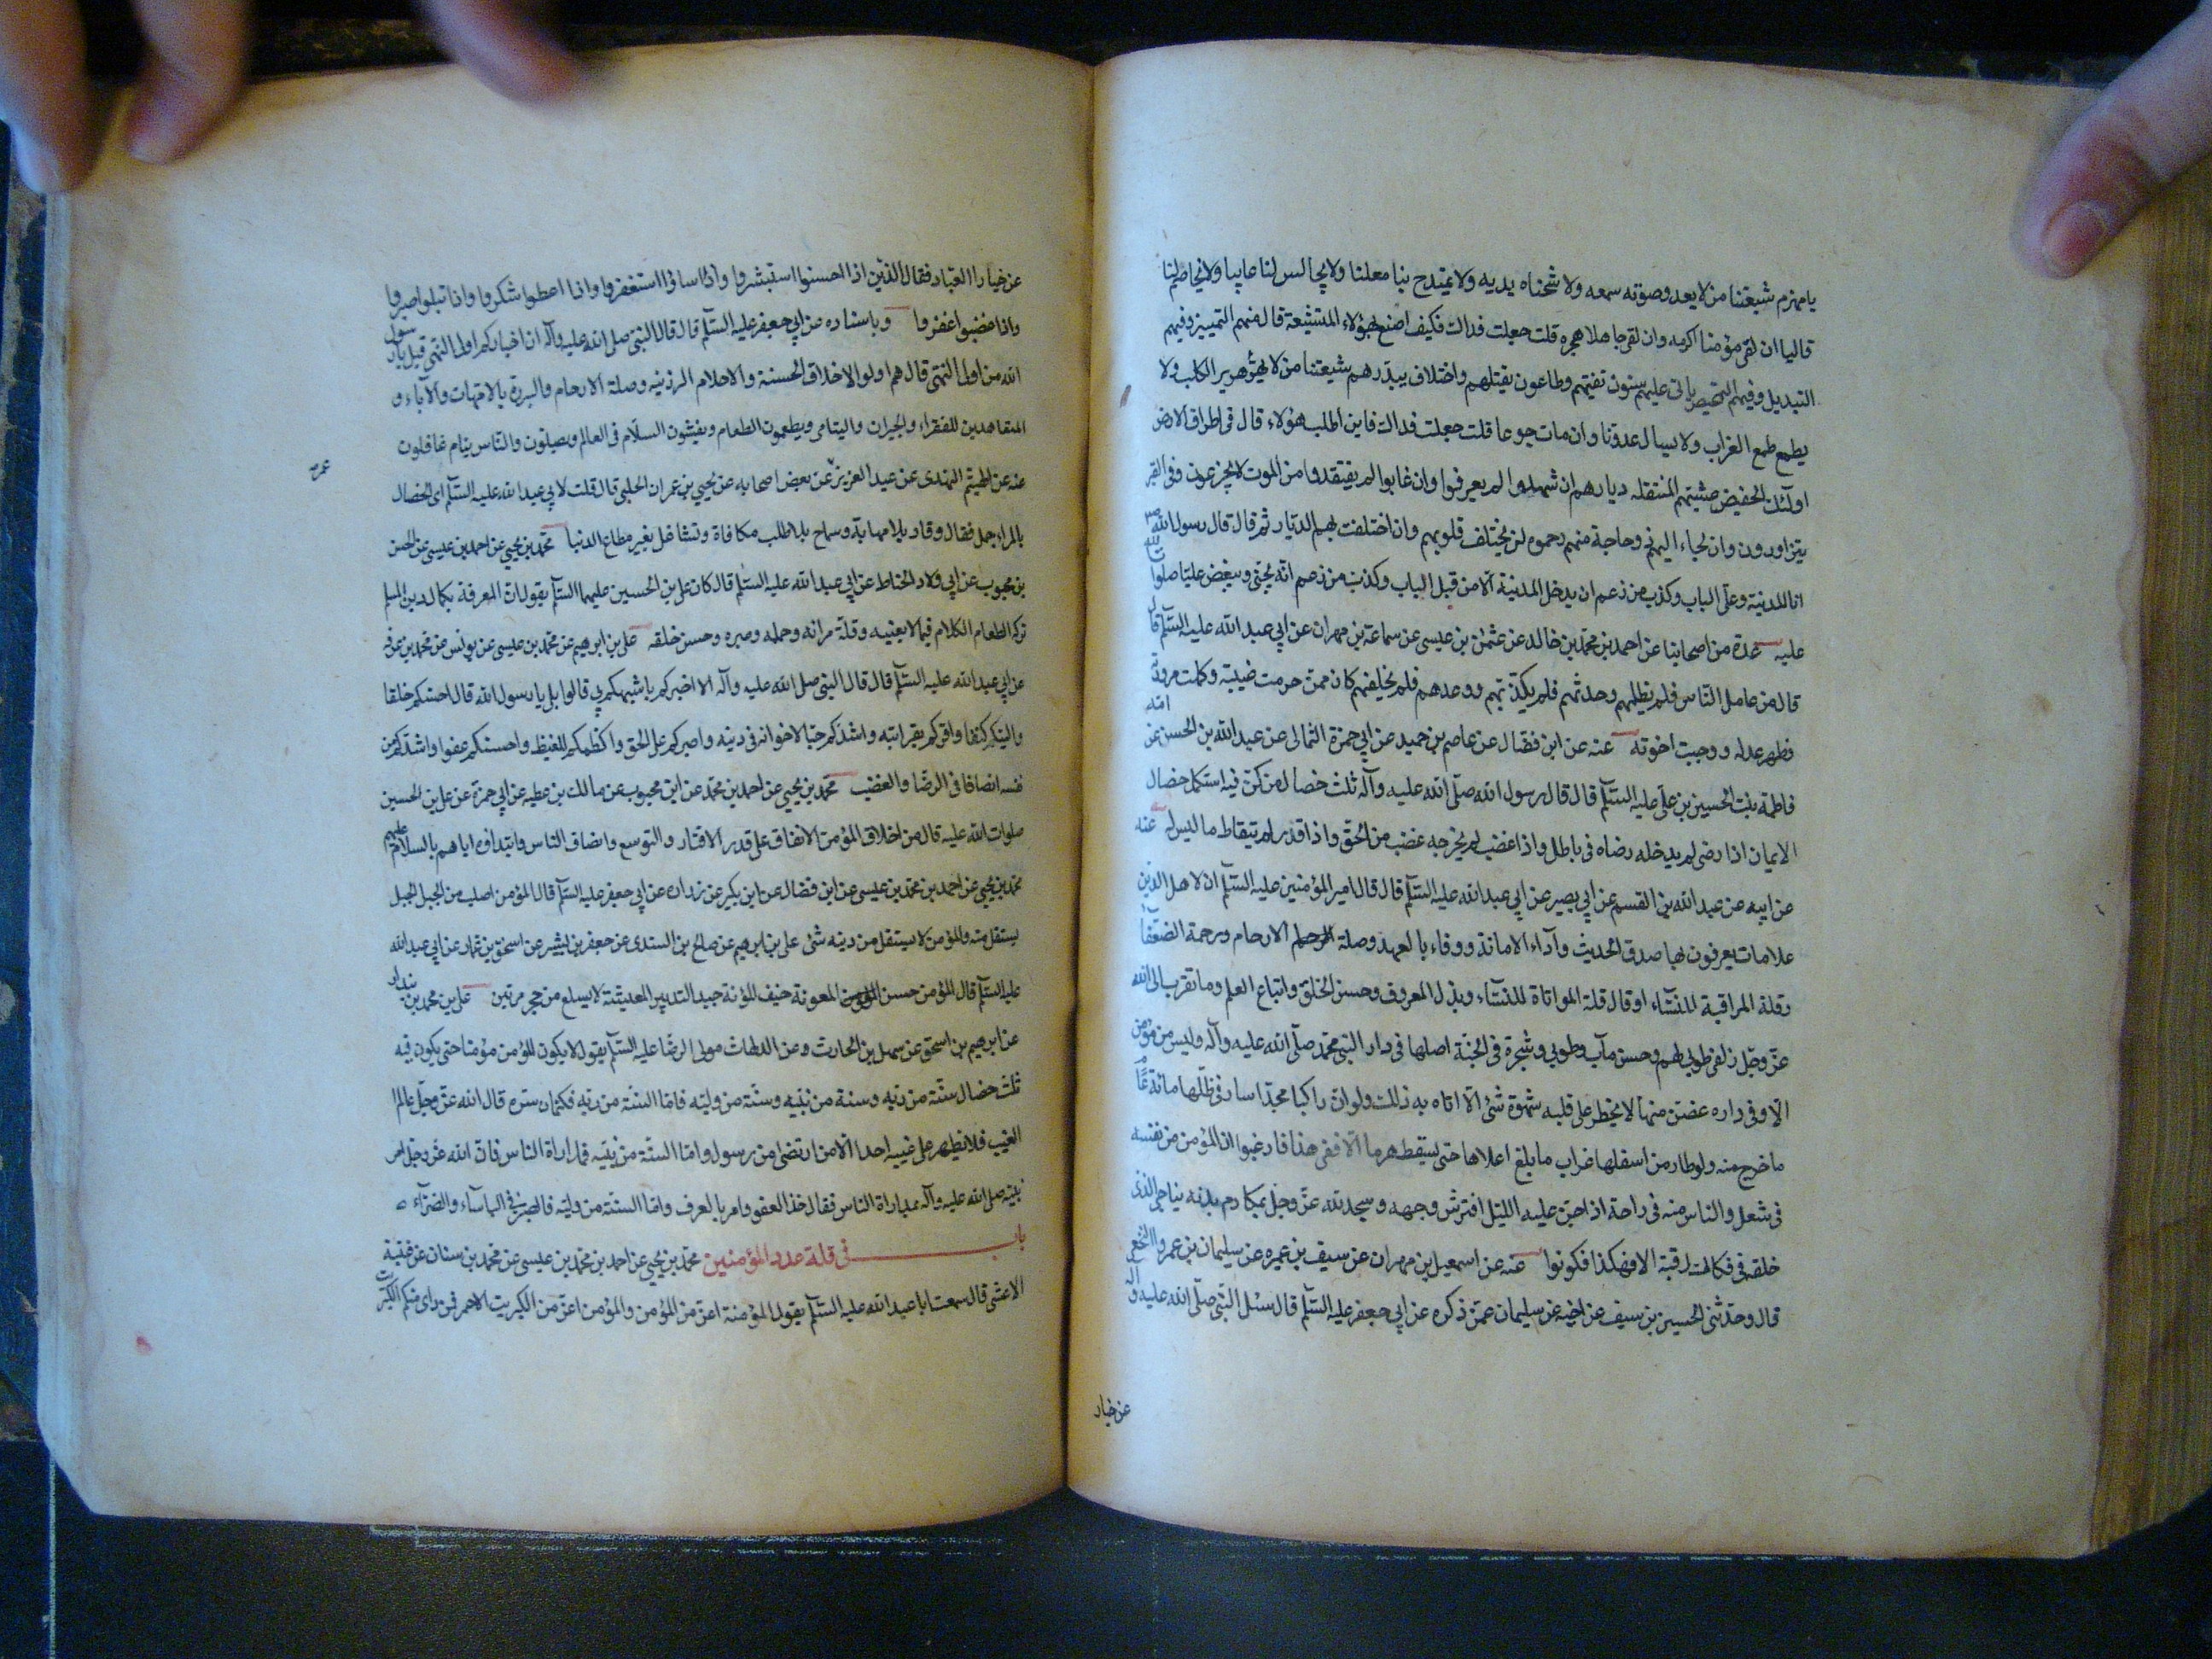 يا مهزم شيعتنا من لا يعدو صوته سمعه ولا شحناه يديه ولا يمتدح بنا معلنا ولا يجالس لنا عايبا ولا يخاصم لنا
قاليا ان لقى مؤمنا اكرمه وان لقى جاهلا هجره قلت جعلت فداك فكيف اصنع بهؤلاء المتشيعة قال فيهم التمييز وفيهم
التبديل وفيهم التمحيص ياتى عليهم سنون تفنيهم وطاعون يقتلهم واختلاف يبددهم شيعتنا من لا يهر هرير الكلب ولا
يطمع طمع الغراب ولا يسال عدونا وان مات جوعا قلت جعلت فداك فاين اطلب هؤلاء قال فى اطراف الارض
اولئك الخفيض عيشتهم المنتقله ديارهم ان شهدوا لم يعرفوا وان غابوا لم يفتقدوا من الموت لا يجزعون وفى القبر
يتزاورون وان لجاء اليهم ذو حاجة منهم رحموه لن يختلف قلوبهم وان اختلفت بهم الديار ثم قال قال رسول الله ص
انا المدينة وعلى الباب وكذب من زعم ان يدخل المدينة الا من قبل الباب وكذب من زعم انه يحبنى ويبغض عليا صلوات الله
عليه عدة من اصحابنا عن احمد بن محمد بن خالد عن عثمن بن عيسى عن سماعة بن مهران عن ابى عبد الله عليه السلم قال
قال من عامل الناس فلم يظلمهم وحدثهم فلم يكذبهم ووعدهم فلم يخلفهم كان ممن حرمت غيبته وكملت مروته
وظهر عدله ووجبت اخوته عنه عن ابن فضال عن عاصم بن حميد عن ابى حمزة الثمالى عن عبد الله بن الحسن عن امه
فاطمة بنت الحسين بن على عليه السلم قال قال رسول الله صلى الله عليه وآله ثلث خصال من كن فيه استكمل خصال
الايمان اذا رضى لم يدخله رضاه فى باطل واذا غضب لم يخرجه غضب من الحق واذا قدر لم يتعاط ما ليس له عنه
عن ابيه عن عبد الله بن القسم عن ابى بصير عن ابى عبد الله عليه السلم قال قال امير المؤمنين عليه السلم ان لاهل الدين
علامات يعرفون بها صدق الحديث وآداء الامانة ووفاء بالعهد وصلة الارحام ورحمة الضعفاء
وقلة المراقبة للنساء او قال قلة المواتاة للنساء وبذل المعروف وحسن الخلق واتباع العلم وما تقرب الى الله
عز وجل زلفى طوبى لهم وحسن مآب وطوبى شجرة فى الجنة اصلها فى دار النبى محمد صلى الله عليه وآله وليس من مؤمن
الا وفى داره غصن منها لا يخطر على قلبه شهوة شئ الا اتاه به ذلك ولو ان راكبا مجدا سار فى ظلها مائة عام
ما خرج منه ولو طار من اسفلها غراب ما بلغ اعلاها حتى يسقط هرما الا ففى هذا فارغبوا ان المؤمن من نفسه
فى شغل والناس منه فى راحة اذا جن عليه الليل افترش وجهه وسجد لله عز وجل بمكارم بدنه يناجى الذى
خلقه فى فكاك رقبة الا فهكذا فكونوا عنه عن اسمعيل بن مهران عن سيف بن عميره عن سليمان بن عمرو النخعى
قال وحدثنى الحسين بن سيف عن اخيه عن سليمان عمن ذكره عن ابى جعفر عليه السلم قال سئل النبى صلى الله عليه وآله
عن خيار
عن خيار العباد فقال الذين اذا احسنوا استبشروا واذا اساؤا استغفروا واذا اعطوا شكروا واذا ابتلوا صبروا
واذا غضبوا غفروا وباسناده عن ابى جعفر عليه السلم قال قال النبى صلى الله عليه وآله ان اخياركم اولوا النهى قيل يا رسول
الله من اولوا النهى قال هم اولو الاخلاق الحسنة والاحلام الرزينه وصلة الارحام والبررة بالامهات والآباء و
المتعاهدين للفقراء والجيران واليتامى ويطعمون الطعام ويفشون السلام فى العالم ويصلون والناس نيام غافلون
عنه عن الهيثم النهدى عن عبد العزيز عن بعض اصحابه عن يحيى بن عمران الحلبى قال قلت لابى عبد الله عليه السلم اى الخصال
بالمراء جمل فقال وقار بلا مهابة وسماح بلا طلب مكافاة وتشاغل بغير متاع الدنيا محمد بن يحيى عن احمد بن عيسى عن الحسن
بن محبوب عن ابى ولاد الحناط عن ابى عبد الله عليه السلم قال كان على بن الحسين عليهما السلم يقول ان المعرفة بكمال دين المسلم
تركه الكلام فيما لا يعنيه وقلة مرائه وحلمه وصبره وحسن خلقه على بن ابرهيم عن محمد بن عيسى عن يونس عن محمد بن عرفه
عن ابى عبد الله عليه السلم قال قال النبى صلى الله عليه وآله الا اخبركم باشبهكم بى قالوا بلى يا رسول الله قال احسنكم خلقا
والينكم كنفا واقربكم بقرابته واشدكم حبا لاخوانه فى دينه واصبركم على الحق واكظمكم للغيظ واحسنكم عفوا واشدكم من
نفسه انصافا فى الرضا والغضب محمد بن يحيى عن احمد بن محمد عن ابن محبوب عن مالك بن عطيه عن ابى حمزة عن على بن الحسين
صلوات الله عليه قال من اخلاق المؤمن الانفاق على قدر الاقتار والتوسع وانصاف الناس وابتداؤه اياهم بالسلام عليهم
محمد بن يحيى عن احمد بن محمد بن عيسى عن ابن فضال عن ابن بكير عن زراره عن ابى جعفر عليه السلم قال المؤمن اصلب من الجبل الجبل
يستقل منه والمؤمن لا يستقل من دينه شئ على بن ابرهيم عن صالح بن السندى عن جعفر بن بشير عن اسحق بن عمار عن ابى عبد الله
عليه السلم قال المؤمن حسن المعونة خفيف المؤنة جيد التدبير لمعيشته لا يلسع من حجر مرتين على بن محمد بن بندار
عن ابرهيم بن اسحق عن سهل بن الحارث عن الدلهاث مولى الرضا عليه السلم يقول لا يكون المؤمن مؤمنا حتى يكون فيه
ثلث خصال سنة من ربه وسنة من نبيه وسنة من وليه فاما السنة من ربه فكتمان سره قال الله عز وجل عالم
الغيب فلا يظهر على غيبه احدا الا من ارتضى من رسول واما السنة من نبيه فمداراة الناس فان الله عز وجل امر
نبيه صلى الله عليه وآله بمداراة الناس فقال خذ العفو وامر بالعرف واما السنة من وليه فالصبر فى الباساء والضراء
باب فى قلة عدد المؤمنين محمد بن يحيى عن احمد بن محمد بن عيسى عن محمد بن سنان عن قتيبة
الاعشى قال سمعت ابا عبد الله عليه السلم يقول المؤمنة اعز من المؤمن والمؤمن اعز من الكبريت الاحمر فمن راى منكم الكبريت